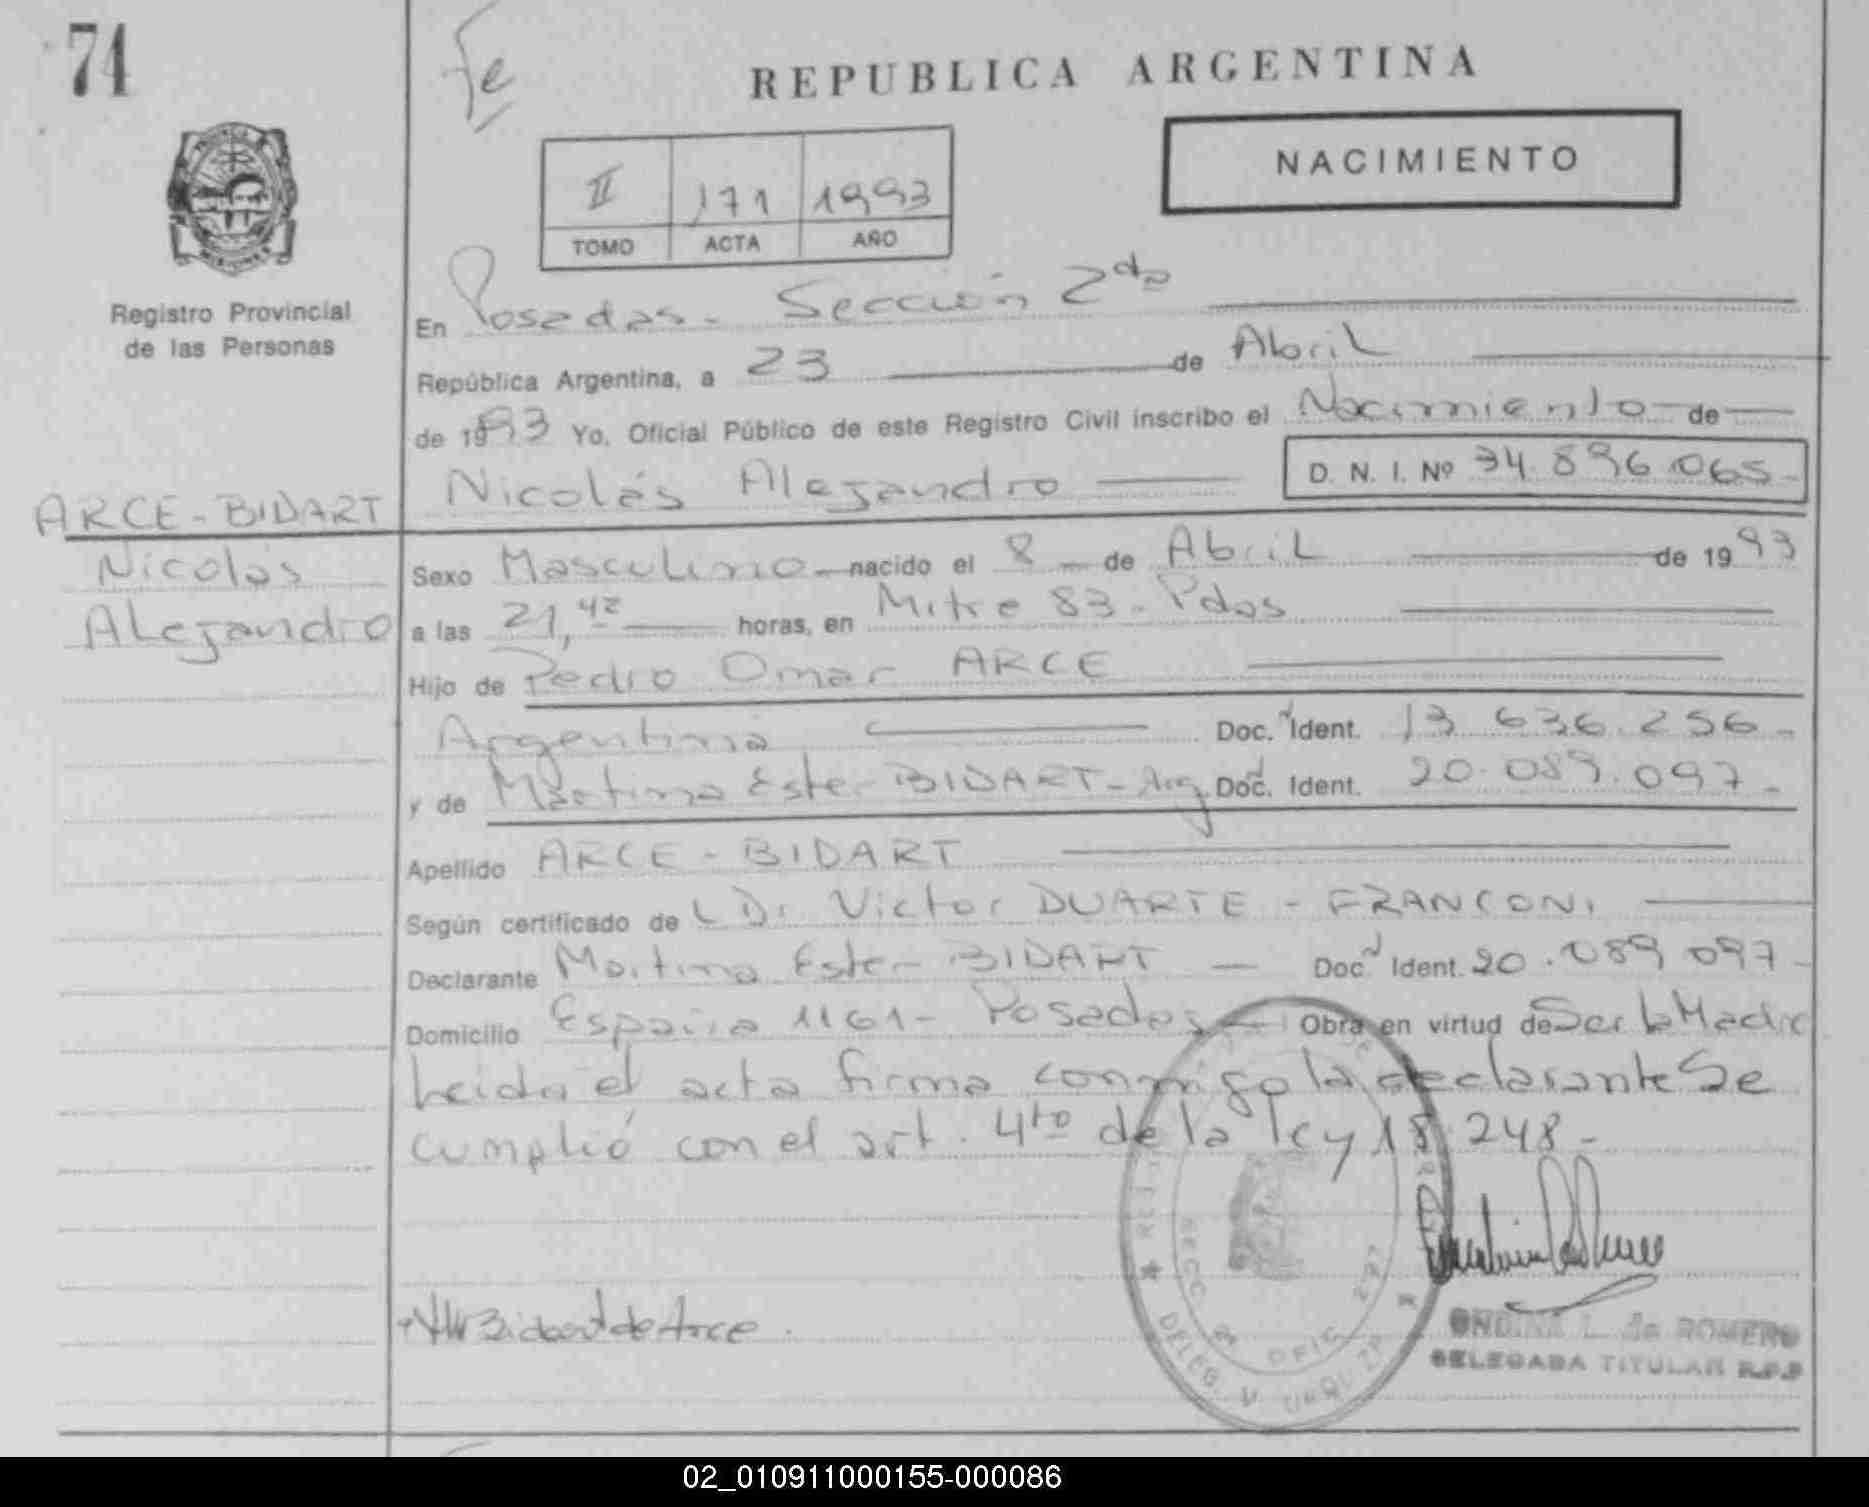 74
Fe
REPUBLICA ARGENTINA
NACIMIENTO
II 171 1993
TOMO ACTA AÑO
Registro Provincial
de las Personas
En Posadas - Sección 2da
República Argentina, a 23 de Abril
de 1993 Yo, Oficial Público de este Registro Civil inscribo el Nacimiento de
Nicolás Alejandro D. N. I. Nº 34.896.065-
ARCE - BIDART
Nicolás
Alejandro
Sexo Masculino nacido el 8 de Abril de 1993
a las 21,42 horas, en Mitre 83 - Pdas
Hijo de Pedro Omar ARCE
Argentina Doc. Ident. 13.636.256-
y de Martina Ester BIDART - Arg Doc. Ident. 20.089.097-
Apellido ARCE - BIDART
Según certificado de L Dr Victor DUARTE - FRANCONI
Declarante Martina Ester BIDART - Doc. Ident. 20.089.097-
Domicilio España 1161 - Posadas Obra en virtud de Ser la Madre
Leida el acta firma conmigo la declarante Se
cumplió con el art. 4to de la ley 18.248-
Bidart de Arce
ONDINA L. de ROMERO
DELEGADA TITULAR R.P.P
DELEG. V. URQUIZA
02_010911000155-000086